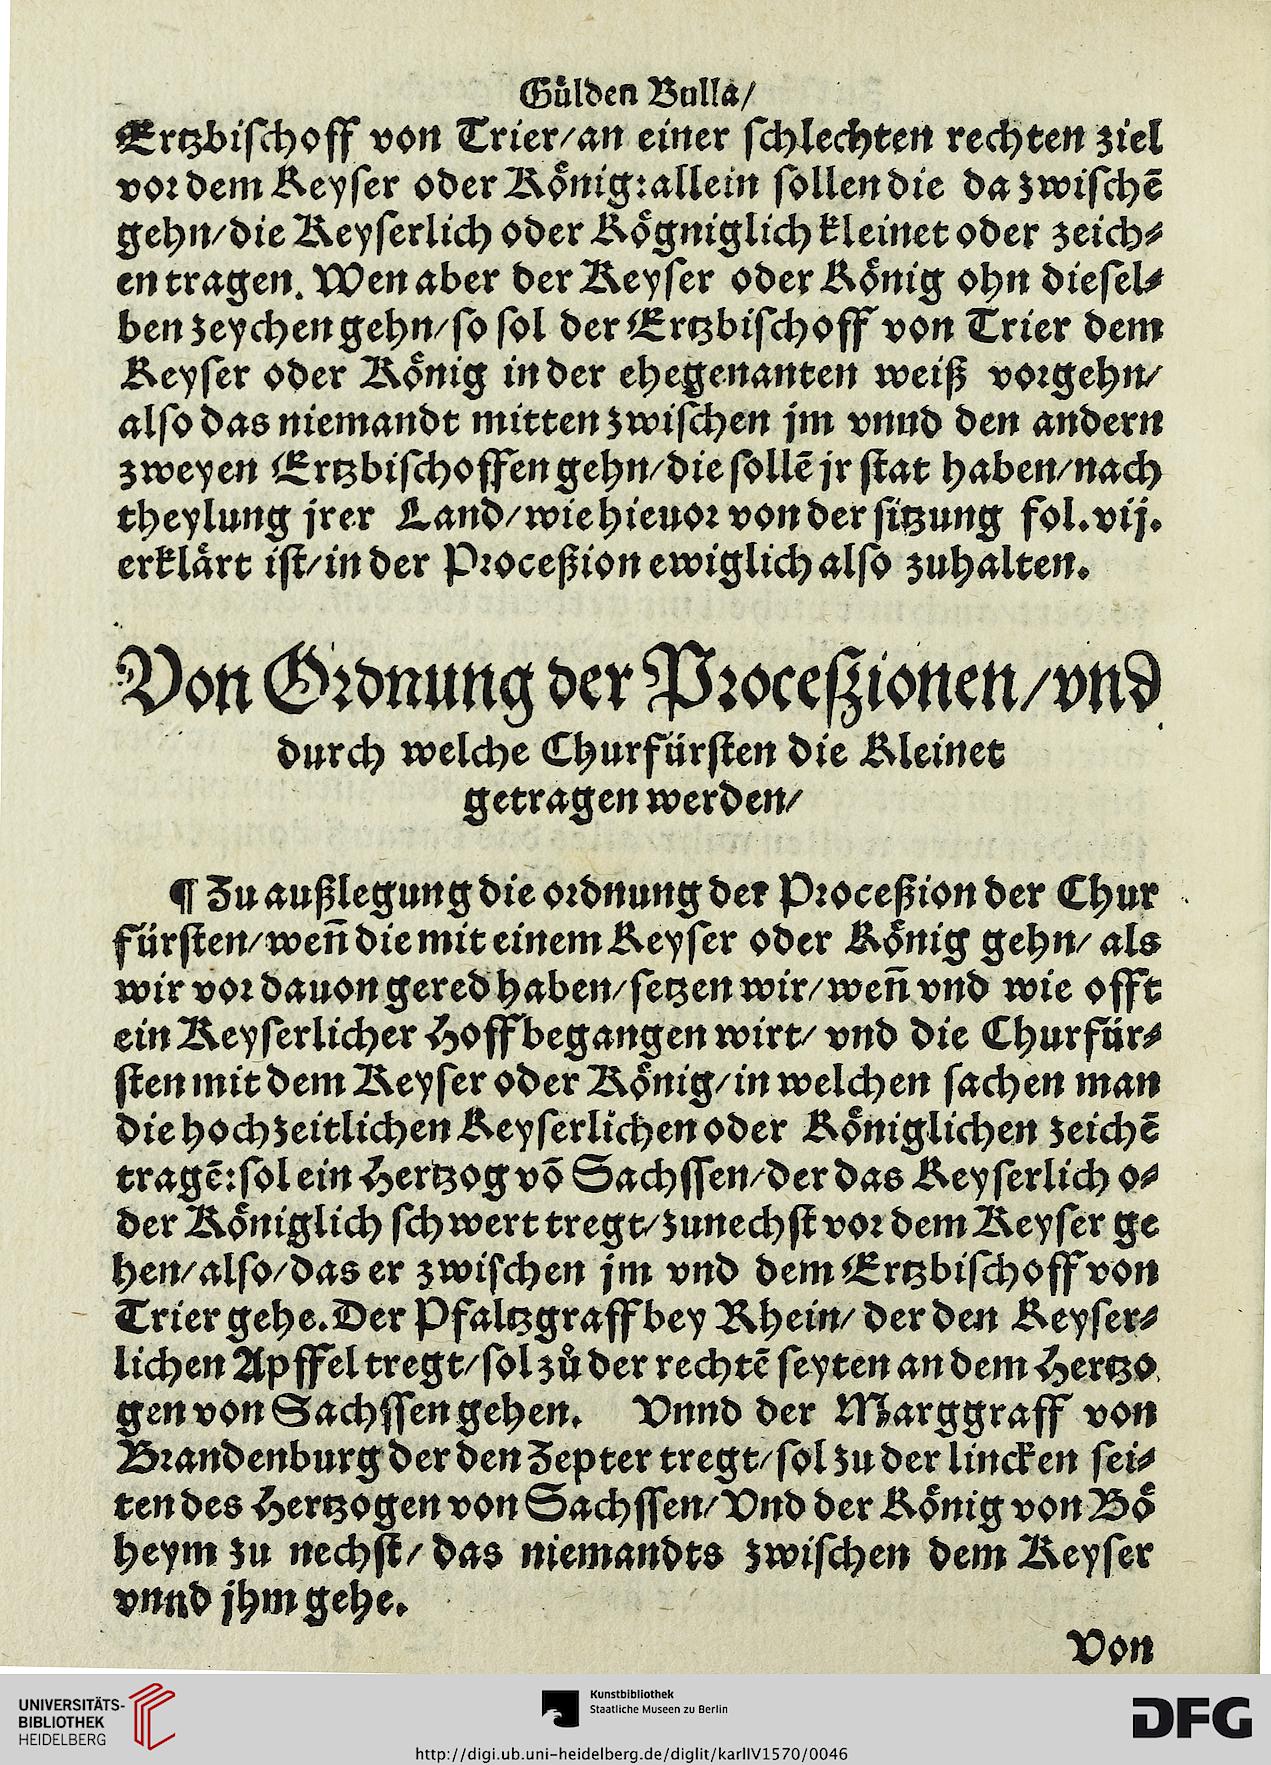 Gülden Bulla/
Ertzbischoff von Trier/an einer schlechten rechten ziel
vor dem Keyser oder König:allein sollen die da zwischē
gehn/die Keyserlich oder Kögniglich kleinet oder zeich⸗
en tragen. Wen aber der Keyser oder König ohn diesel⸗
ben zeychen gehn/so sol der Ertzbischoff von Trier dem
Keyser oder König in der ehegenanten weiß vorgehn/
also das niemandt mitten zwischen jm vnnd den andern
zweyen Ertzbischoffen gehn/die sollē jr stat haben/nach
theylung jrer Land/wie hieuor von der sitzung fol.vij.
erklärt ist/in der Proceßion ewiglich also zuhalten.
Von Ordnung der Proceßionen/vnd
durch welche Churfürsten die Kleinet
getragen werden/
¶ Zu außlegung die ordnung der Proceßion der Chur
fürsten/wen̄ die mit einem Keyser oder König gehn/ als
wir vor dauon gered haben/setzen wir/wen̄ vnd wie offt
ein Keyserlicher Hoff begangen wirt/ vnd die Churfür⸗
sten mit dem Keyser oder König/in welchen sachen man
die hochzeitlichen Keyserlichen oder Königlichen zeichē
tragē:sol ein Hertzog vō Sachssen/der das Keyserlich o⸗
der Königlich schwert tregt/zunechst vor dem Keyser ge
hen/also/das er zwischen jm vnd dem Ertzbischoff von
Trier gehe.Der Pfaltzgraff bey Rhein/ der den Keyser⸗
lichen Apffel tregt/sol zů der rechtē seyten an dem Hertzo
gen von Sachssen gehen. Vnnd der Marggraff von
Brandenburg der den Zepter tregt/sol zu der lincken sei⸗
ten des Hertzogen von Sachssen/Vnd der König von Bö
heym zu nechst/ das niemandts zwischen dem Keyser
vnnd jhm gehe.
Von
UNIVERSITÄTS-
BIBLIOTHEK
HEIDELBERG
Kunstbibliothek
Staatliche Museen zu Berlin
DFG
http://digi.ub.uni-heidelberg.de/diglit/karlIV1570/0046